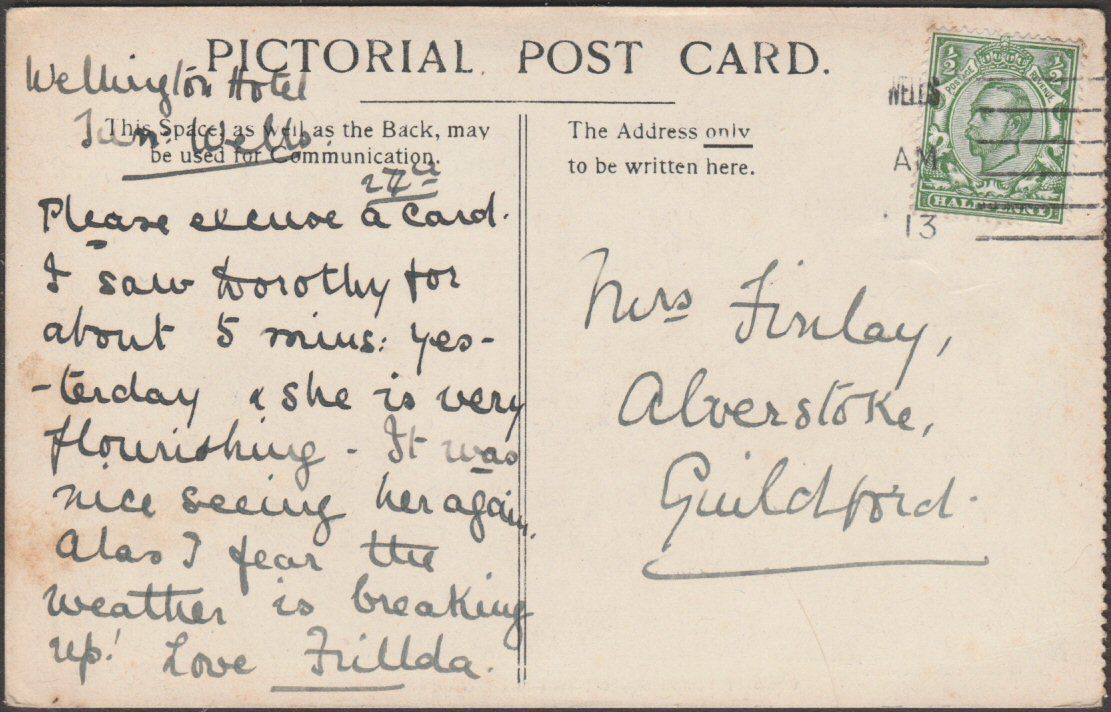 PICTORIAL POST CARD.
Wellington Hotel
Tun. Wells.
This Space, as well as the Back, may
be used for Communication.
27th
Please excuse a card.
I saw Dorothy for
about 5 mins: yes-
-terday & she is very
flourishing - It was
nice seeing her again.
Alas I fear the
weather is breaking
up! Love Frillda.
The Address only
to be written here.
WELLS
AM
13
½ ½
POSTAGE REVENUE
HALFPENNY
Mrs Finlay,
Alverstoke,
Guildford.